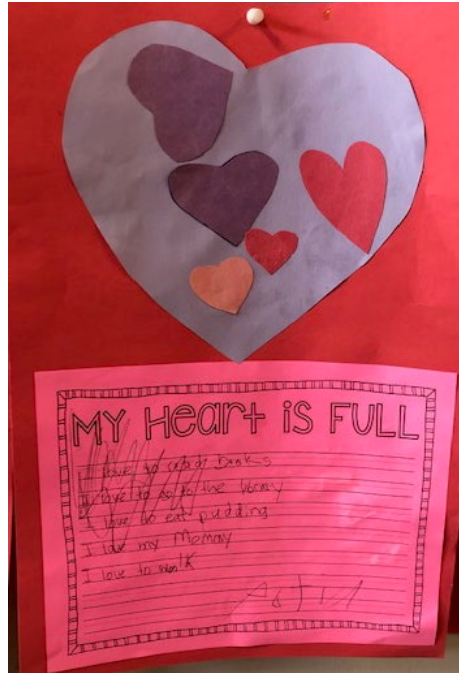 MY HeaRt iS FULL
I love to read Books
I love to go to the library
I love to eat pudding
I love my Memory
I love to walk
Astrid